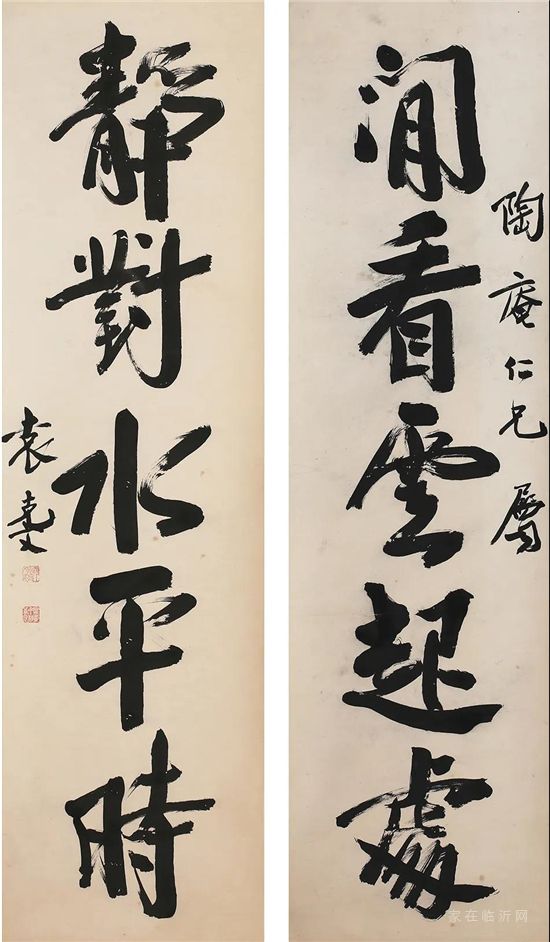 陶庵仁兄屬
閒看雲起處
靜對水平時
袁克文
家在临沂网